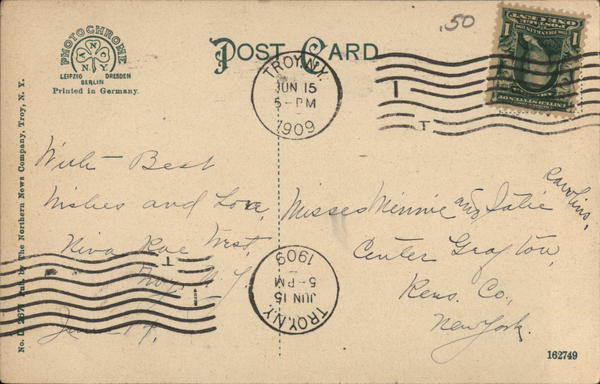 POST CARD
.50
PHOTOCHROME
A N
N O Y
LEIPZIG DRESDEN
BERLIN
Printed in Germany.
No. D 267. Pub. by The Northern News Company, Troy, N. Y.
TROY, N.Y.
JUN 15
5-PM
1909
1 1
With Best
Wishes and Love,
Niva Rae West,
Troy N. Y.
June 14,
Misses Minnie and Julie Rawlins,
Center Grafton,
Rens. Co.,
New York.
TROY, N.Y.
JUN 15
5-PM
1909
162749